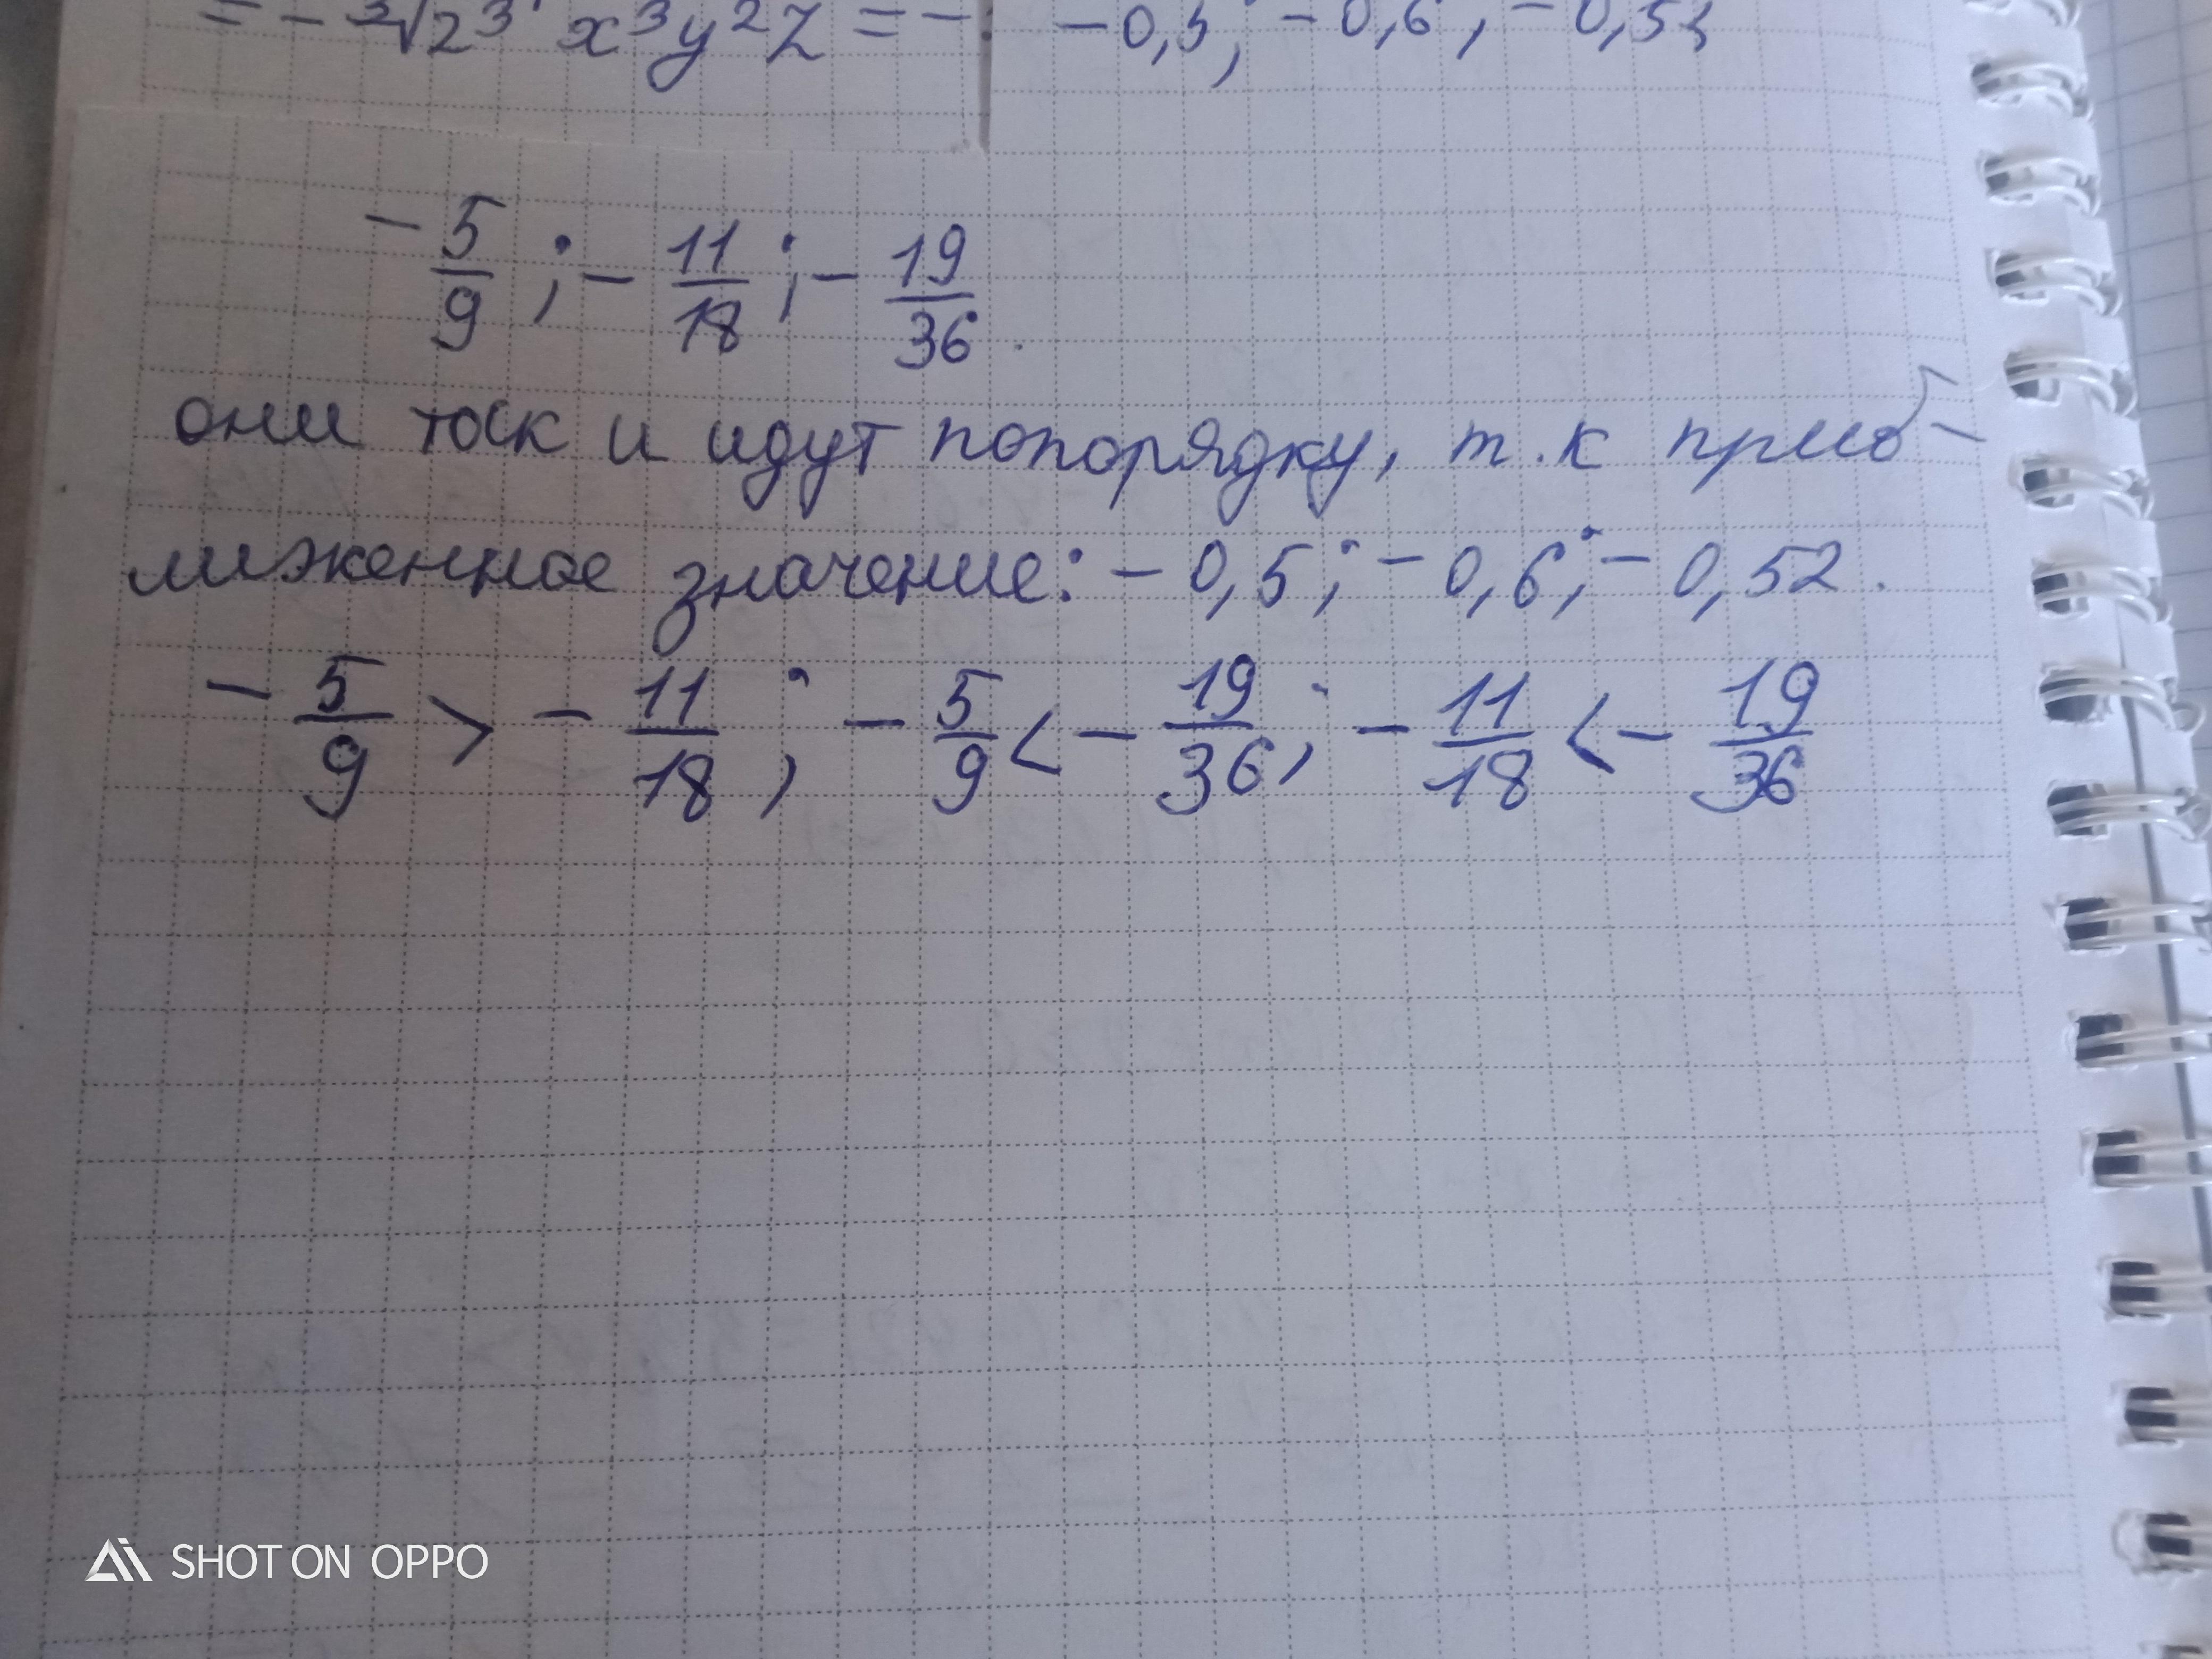 = - ³√2³ x³y²z = -
-0,5; -0,6; -0,53
- 5/9 ; - 11/18 ; - 19/36 .
они тоск и идут попорядку, т.к приб-
лиженное значение: - 0,5; - 0,6; - 0,52.
- 5/9 > - 11/18 ; - 5/9 < - 19/36 ; - 11/18 < - 19/36
SHOT ON OPPO